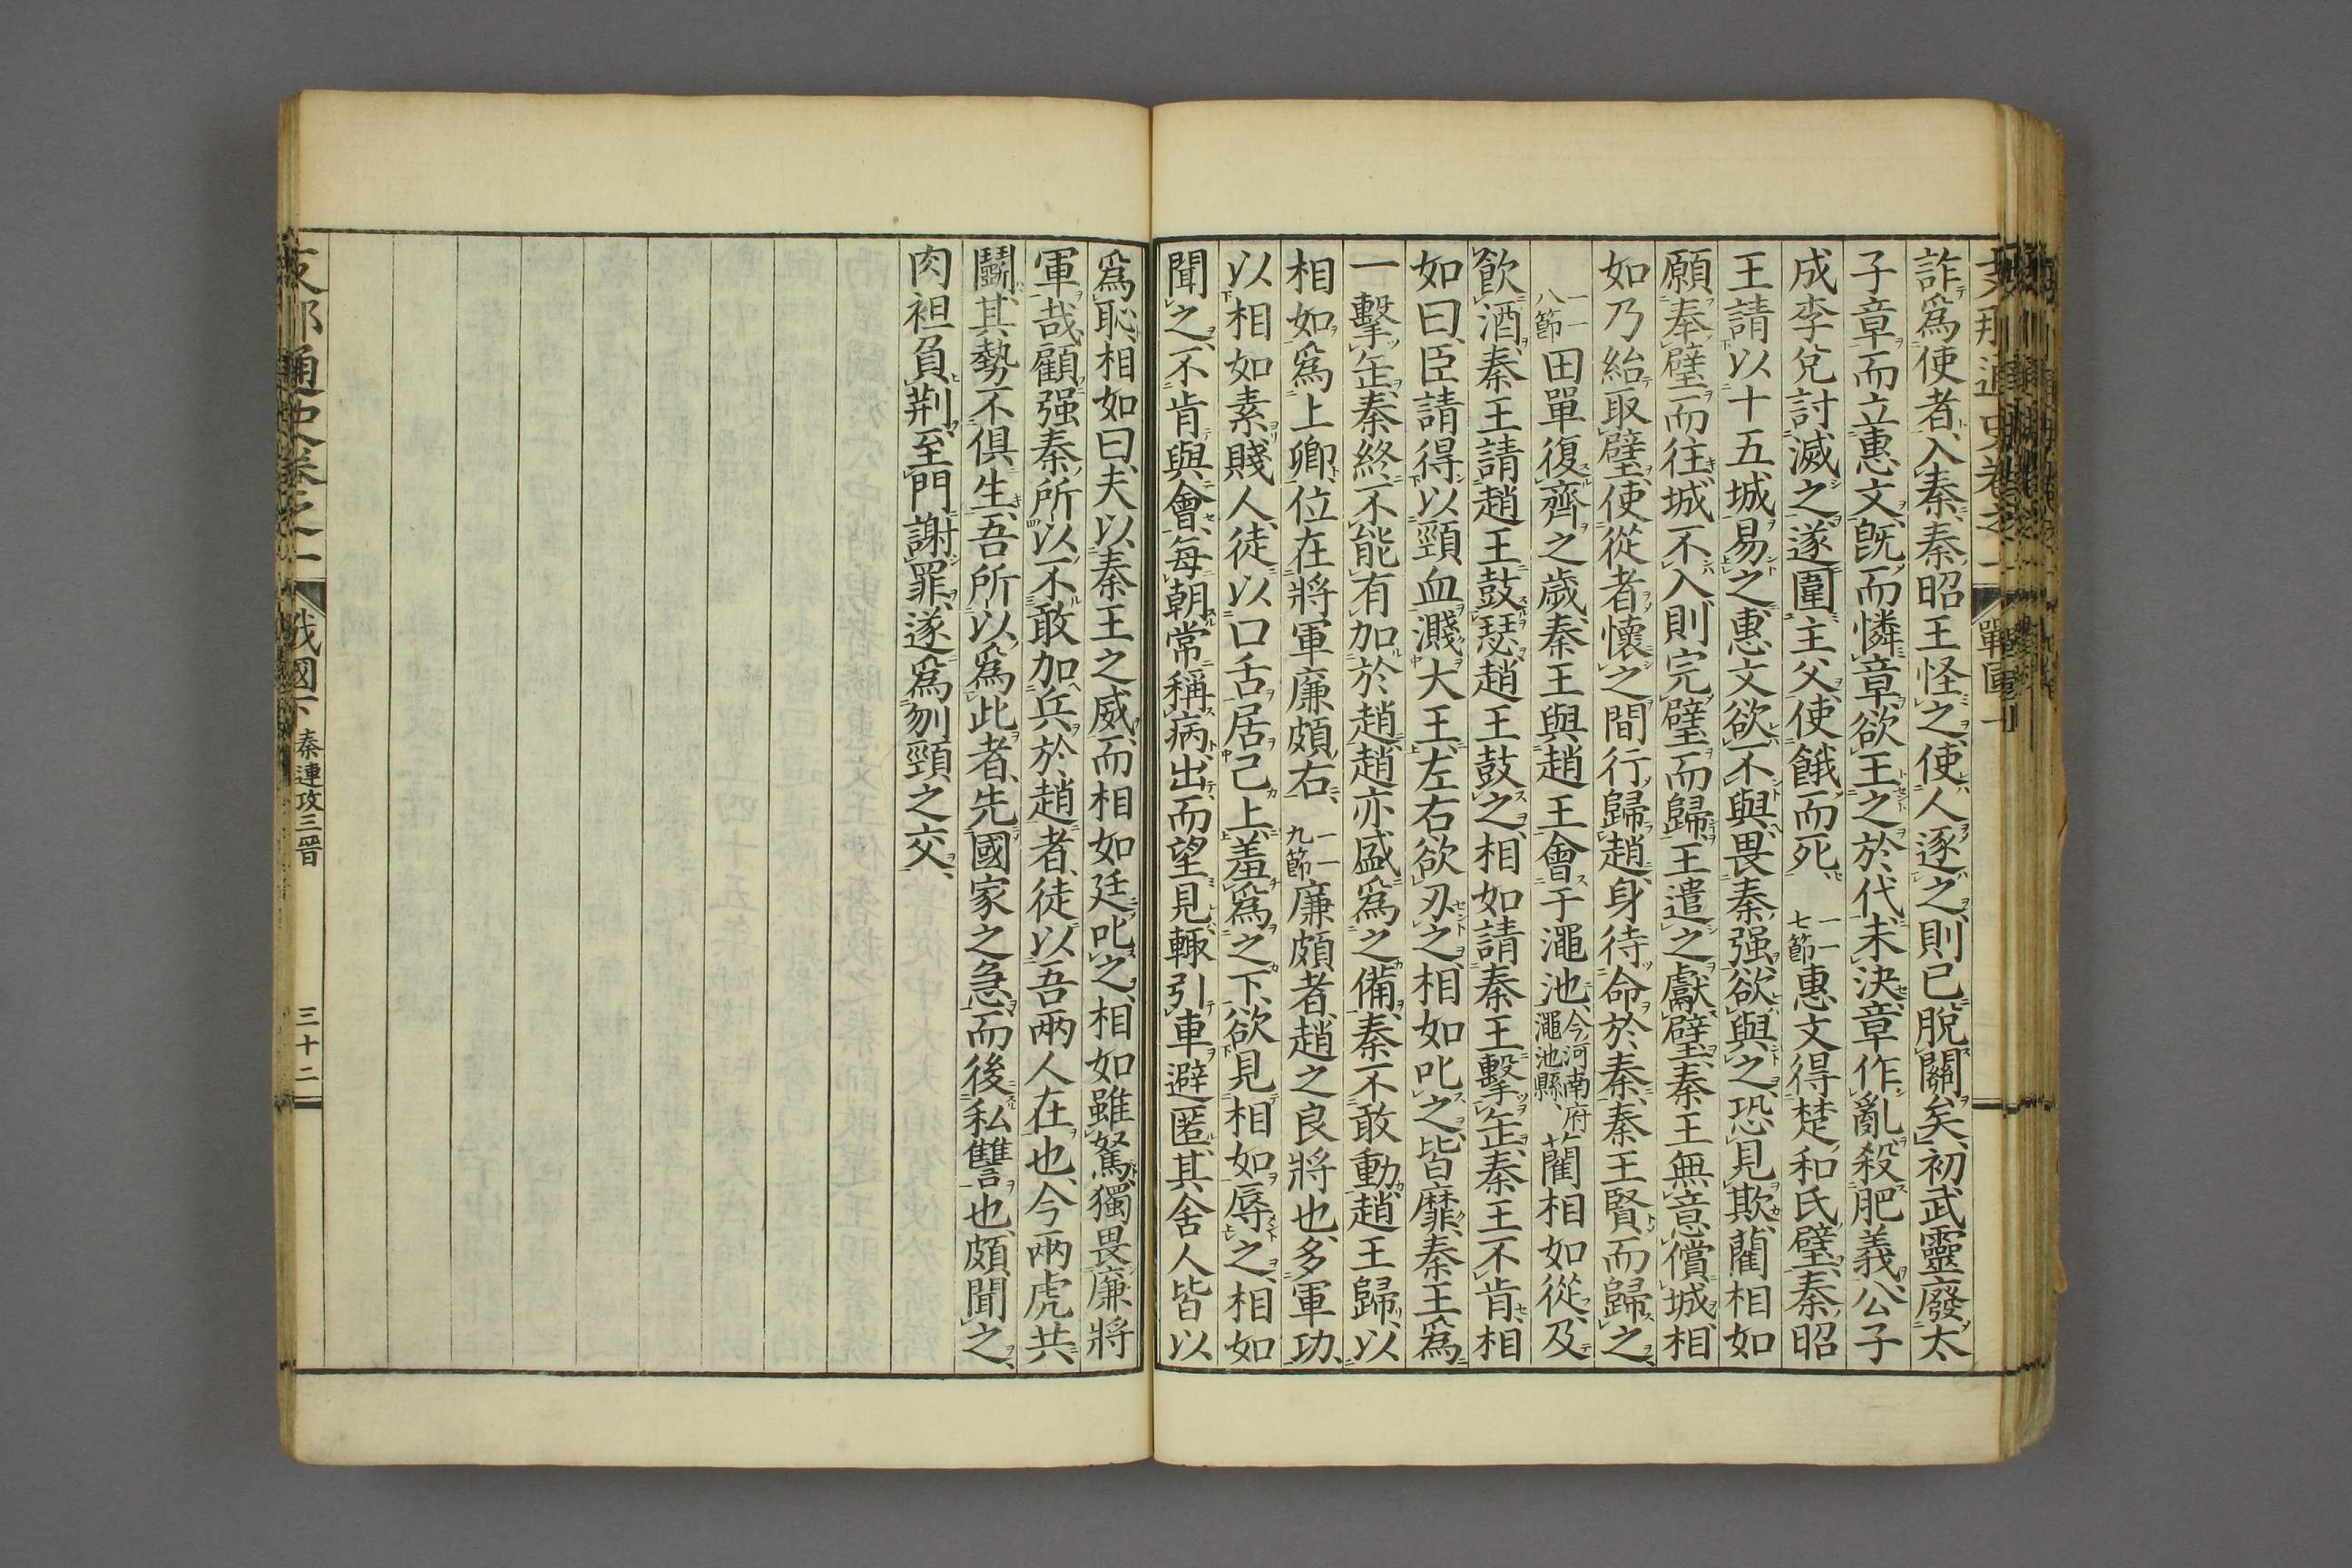 詐爲使者、入秦、秦昭王怪之、使人逐之、則已脫關矣、初武靈廢太
子章而立惠文、既而憐章、欲王之於代、未決、章作亂、殺肥義、公子
成李兌討滅之、遂圍主父、使餓而死、一一七節惠文得楚和氏璧、秦昭
王請以十五城易之、惠文欲不與、畏秦强、欲與之、恐見欺、藺相如
願奉璧而往、城不入、則完璧而歸、王遣之、獻璧、秦王無意償城、相
如乃紿取璧、使從者懷之、間行歸趙、身待命於秦、秦王賢而歸之、
一一八節田單復齊之歲、秦王與趙王會于澠池、今河南府澠池縣、藺相如從、及
飮酒、秦王請趙王鼓瑟、趙王鼓之、相如請秦王擊缶、秦王不肯、相
如曰、臣請得以頸血濺大王、左右欲刃之、相如叱之、皆靡、秦王爲
一擊缶、秦終不能有加於趙、趙亦盛爲之備、秦不敢動、趙王歸、以
相如爲上卿、位在將軍廉頗右、一一九節廉頗者、趙之良將也、多軍功、
以相如素賤人、徒以口舌居己上、羞爲之下、欲見相如辱之、相如
聞之、不肯與會、每朝常稱病、出而望見、輒引車避匿、其舍人皆以
爲恥、相如曰、夫以秦王之威、而相如廷叱之、相如雖駑、獨畏廉將
軍哉、顧强秦所以不敢加兵於趙者、徒以吾兩人在也、今兩虎共
鬭、其勢不俱生、吾所以爲此者、先國家之急、而後私讐也、頗聞之、
肉袒負荆、至門謝罪、遂爲刎頸之交、
支那通史卷之一 戰國下 秦連攻三晉 三十二